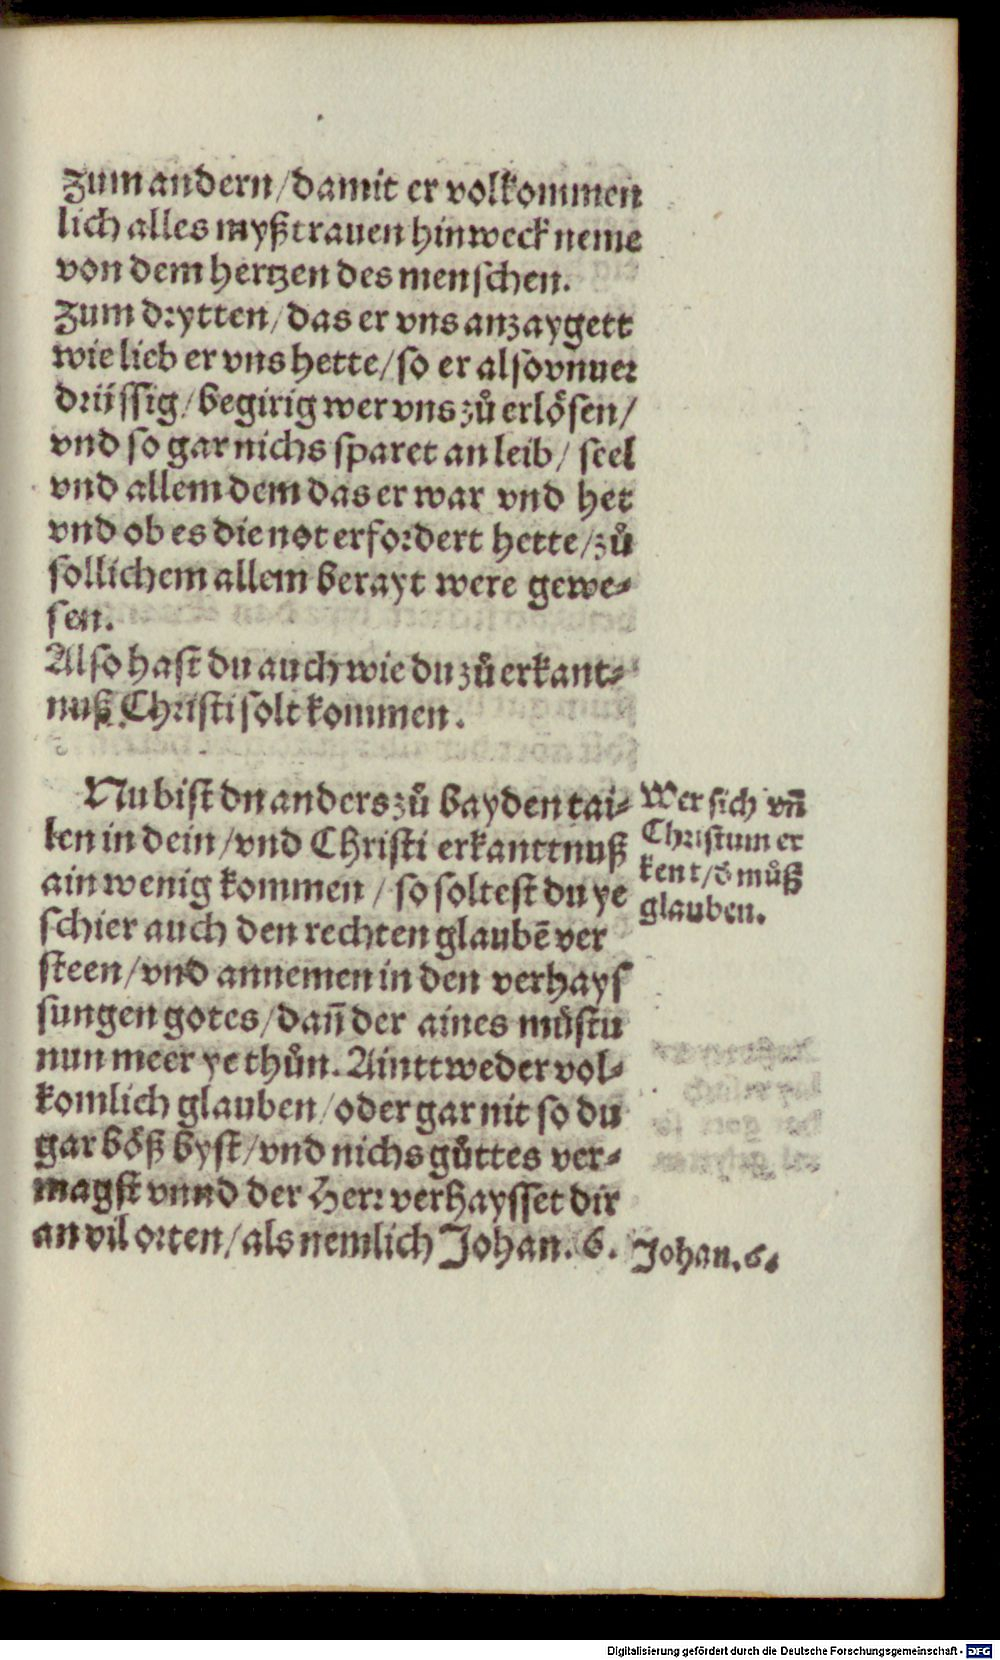 Zum andern/damit er volkommen
lich alles myßtrauen hinweck neme
von dem hertzen des menschen.
Zum drytten/das er vns anzaygett
wie lieb er vns hette/so er also vnuer
drüssig/begirig wer vns zů erlösen/
vnd so gar nichs sparet an leib/ seel
vnd allem dem das er war vnd het
vnd ob es die not erfordert hette/zů
sollichem allem berayt were gewe⸗
sen.
Also hast du auch wie du zů erkant⸗
nuß Christi solt kommen.
Nu bist du anders zů bayden tai⸗
len in dein/vnd Christi erkanttnuß
ain wenig kommen/so soltest du ye
schier auch den rechten glaubē ver
steen/vnd annemen in den verhays
sungen gotes/dañ der aines můstu
nun meer ye thůn. Ainttweder vol⸗
komlich glauben/oder gar nit so du
gar böß byst/vnd nichs gůttes ver⸗
magst vnnd der Herr verhaysset dir
an vil orten/als nemlich Johan. 6.
Wer sich vñ
Christum er
kent/d müß
glauben.
Johan. 6.
Digitalisierung gefördert durch die Deutsche Forschungsgemeinschaft - DFG